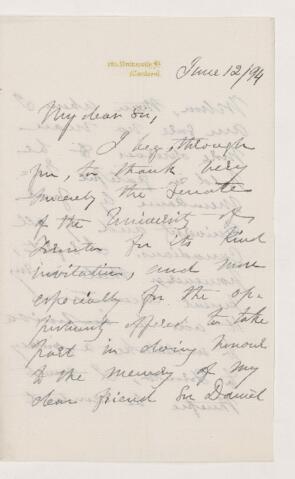 June 12/94
My dear Sir,
I beg, through
you, to thank very
sincerely the Senate
of the University of
Toronto for its kind
invitation, and more
especially for the op-
portunity offered to take
part in doing honour
to the memory of my
dear friend Sir Daniel